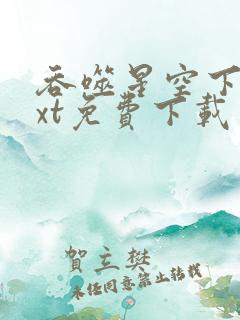 吞噬星空下
xt免費下載
賀立樊
未经同意禁止转载